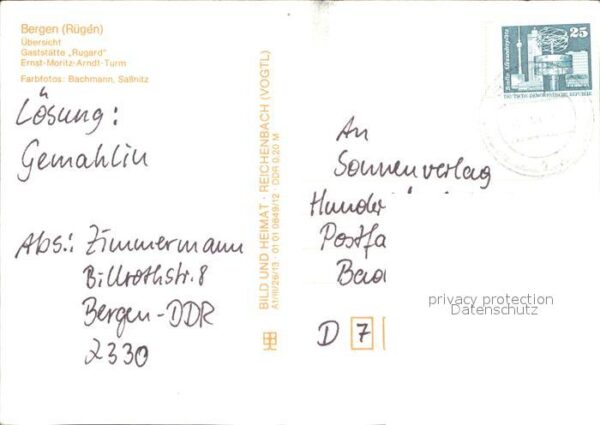 Bergen (Rügen)
Übersicht
Gaststätte „Rugard"
Ernst-Moritz-Arndt-Turm
Farbfotos: Bachmann, Saßnitz
Lösung:
Gemahlin
Abs.: Zimmermann
Billrothstr. 8
Bergen-DDR
2330
BILD UND HEIMAT · REICHENBACH (VOGTL)
A1/III/26/13 · 01 01 0649/12 · DDR 0,20 M
25
Berlin Alexanderplatz
DEUTSCHE DEMOKRATISCHE REPUBLIK
An
Sonnenverlag
Hunder
Postfa
Bad
D 7
privacy protection
Datenschutz